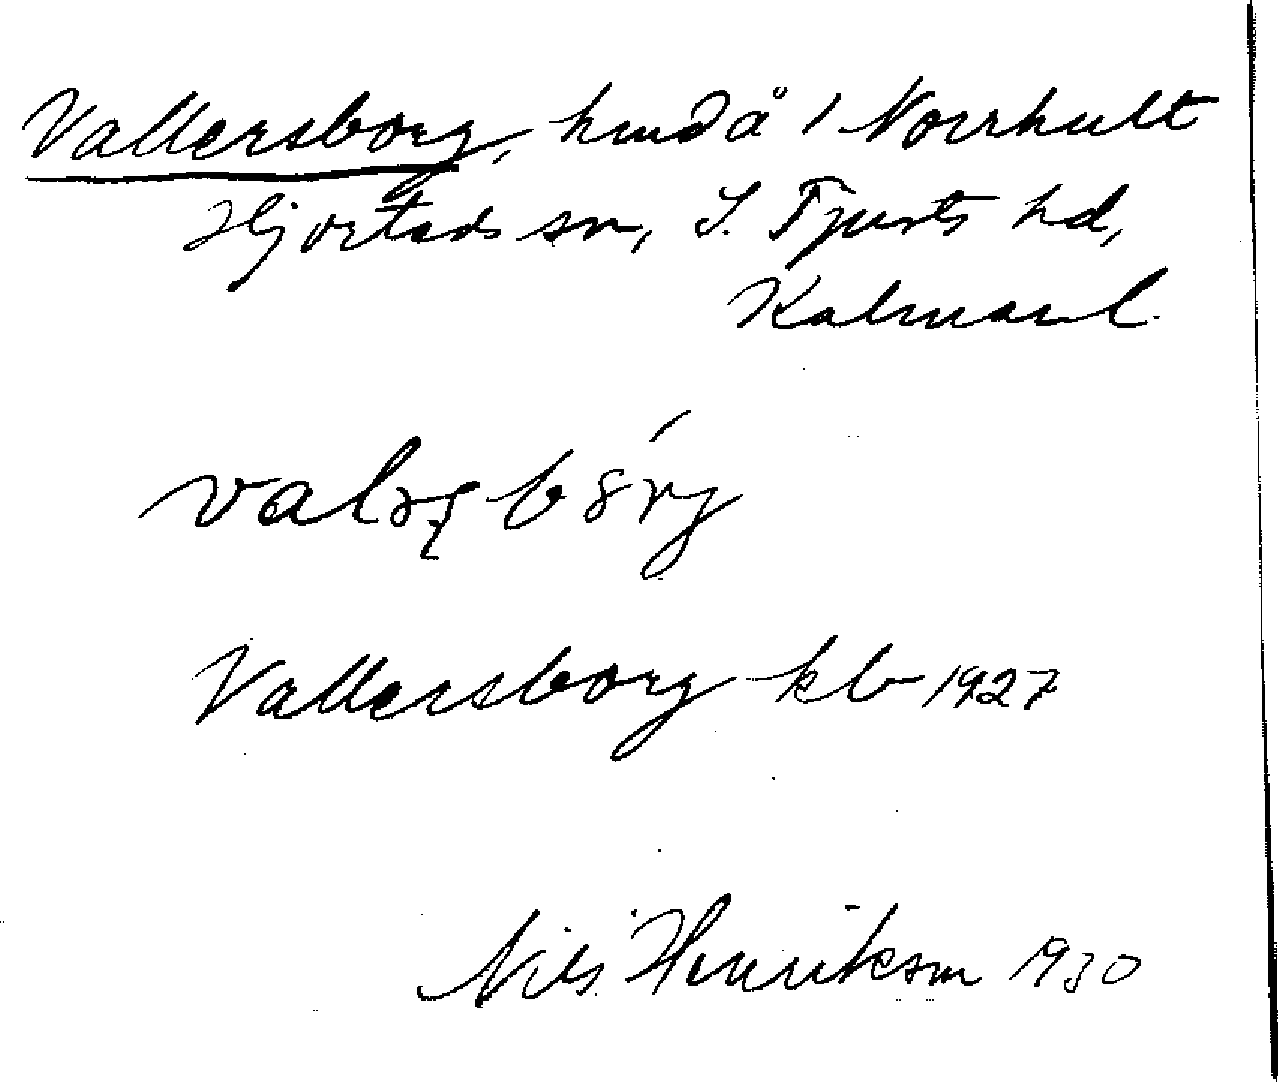 Vallersborg, hmd å 1 Norrhult
Hjorteds sn, S. Tjusts hd,
Kalmar l.
Vallersborg kb 1927
Nils Henrikson 1930